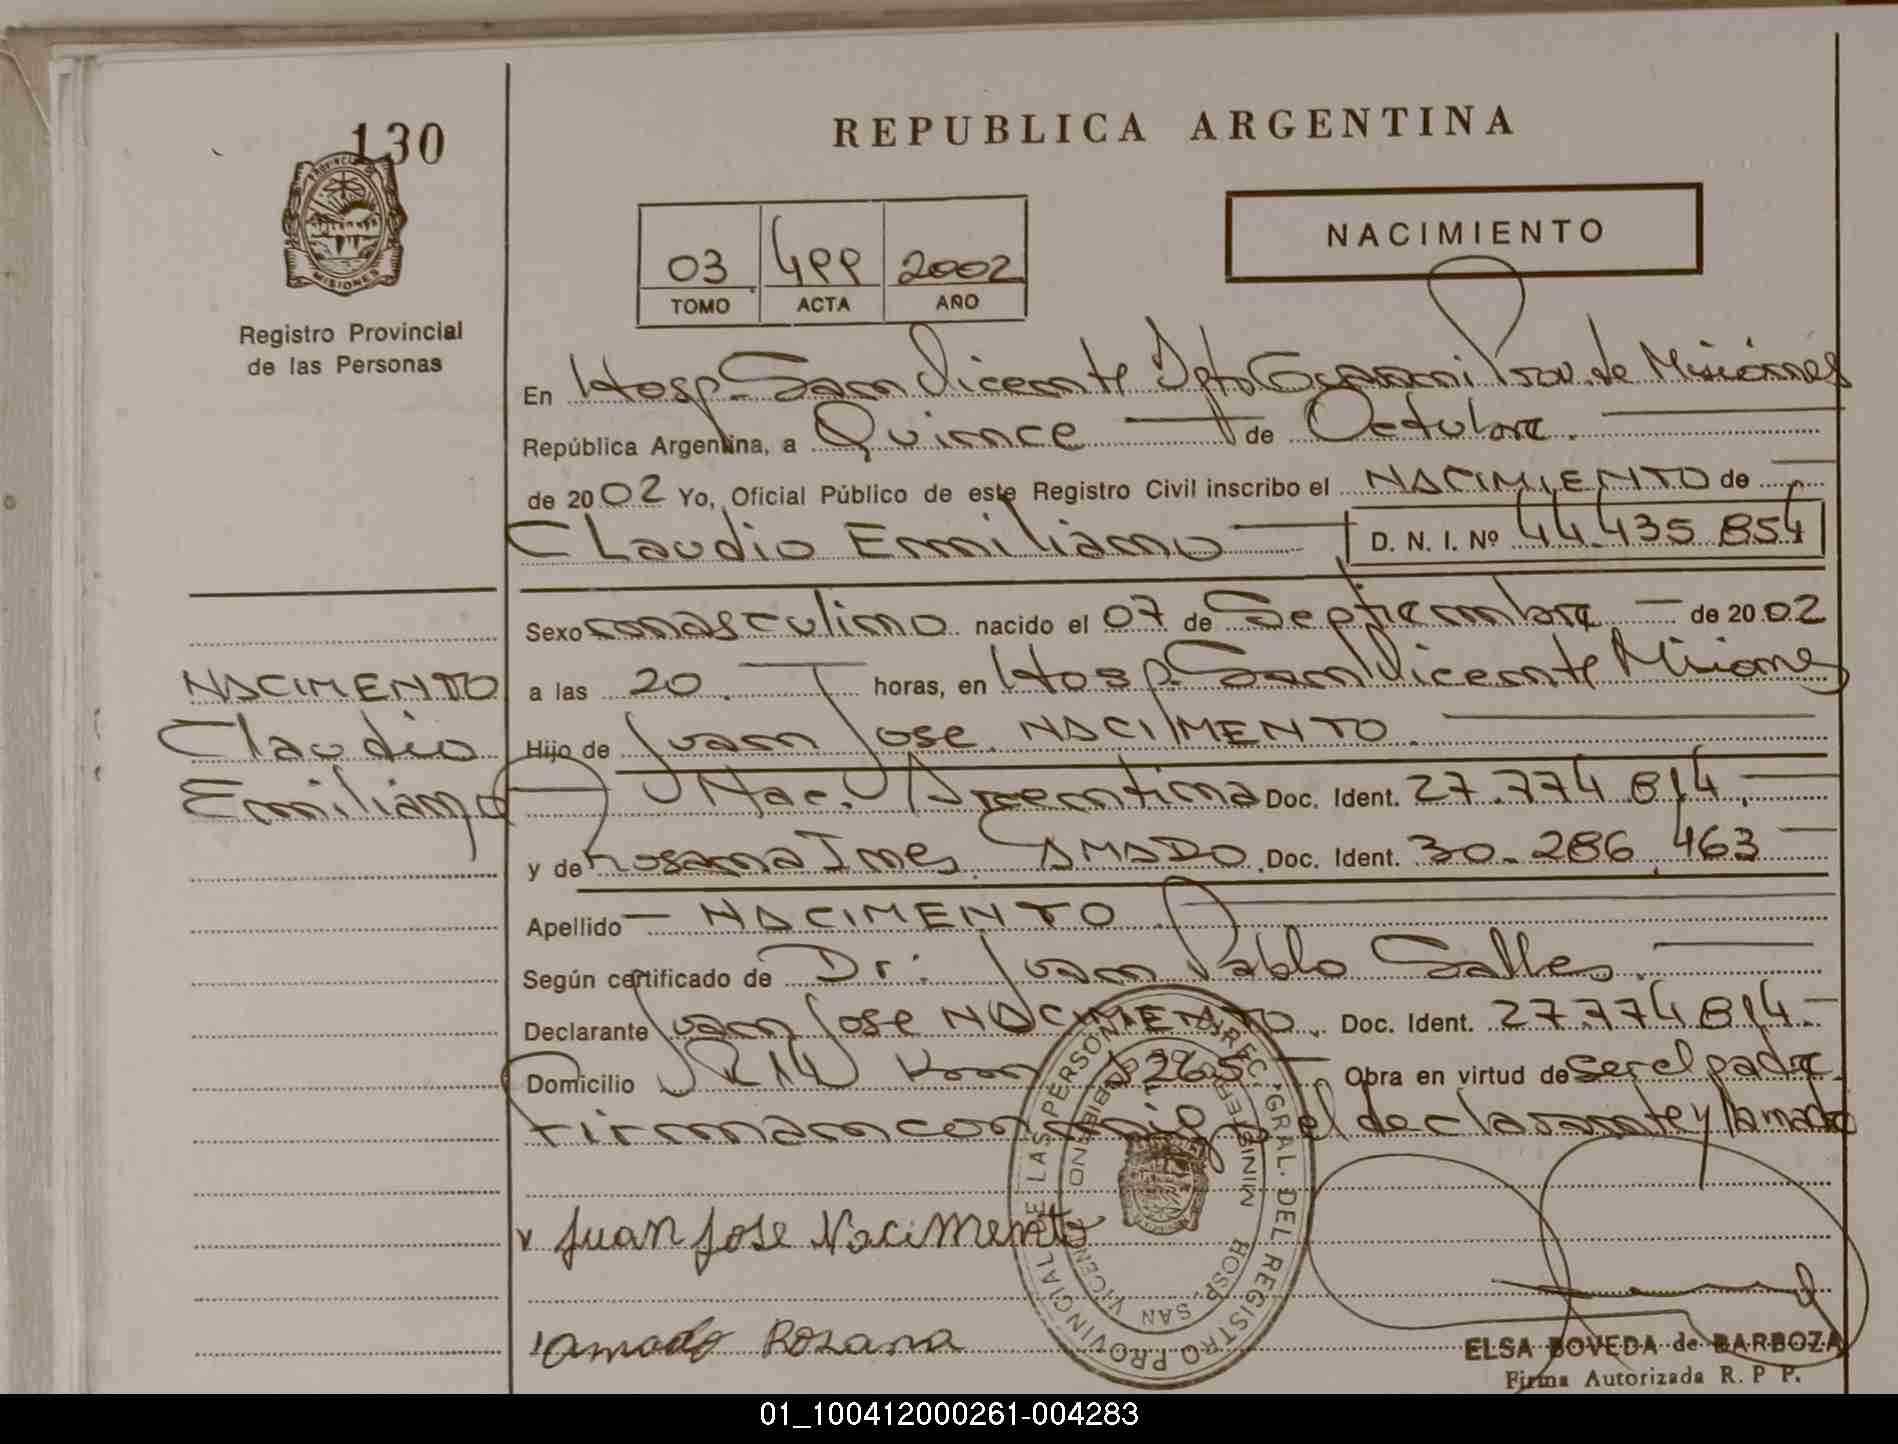 130
PROVINCIA DE
MISIONES
Registro Provincial
de las Personas
REPUBLICA ARGENTINA
NACIMIENTO
03 499 2002
TOMO ACTA AÑO
En Hosp. San Vicente Dpto Guarani Prov. de Misiones
República Argentina, a Quince de Octubre.
de 2002 Yo, Oficial Público de este Registro Civil inscribo el NACIMIENTO de
Claudio Emiliano D. N. I. Nº 44.435 854
Sexo masculino nacido el 07 de Septiembre de 2002
a las 20. horas, en Hosp. San Vicente Misiones
Hijo de Juan Jose NACIMENTO.
Nac. Argentina Doc. Ident. 27.774 814.
y de Rosana Ines AMADO. Doc. Ident. 30.286.463
Apellido NACIMENTO.
Según certificado de Dr: Juan Pablo Salles.
Declarante Juan Jose NACIMENTO. Doc. Ident. 27.774 814.
Domicilio R 14 Km 1265 Obra en virtud de ser el padre
firman conmigo el declarante y la madre
NACIMENTO
Claudio
Emiliano
Juan Jose Nacimento
amado Rosana
DIREC. GRAL. DEL REGISTRO PROVINCIAL DE LAS PERSONAS
HOSP. SAN VICENTE
ELSA BOVEDA de BARBOZA
Firma Autorizada R. P P.
01_100412000261-004283